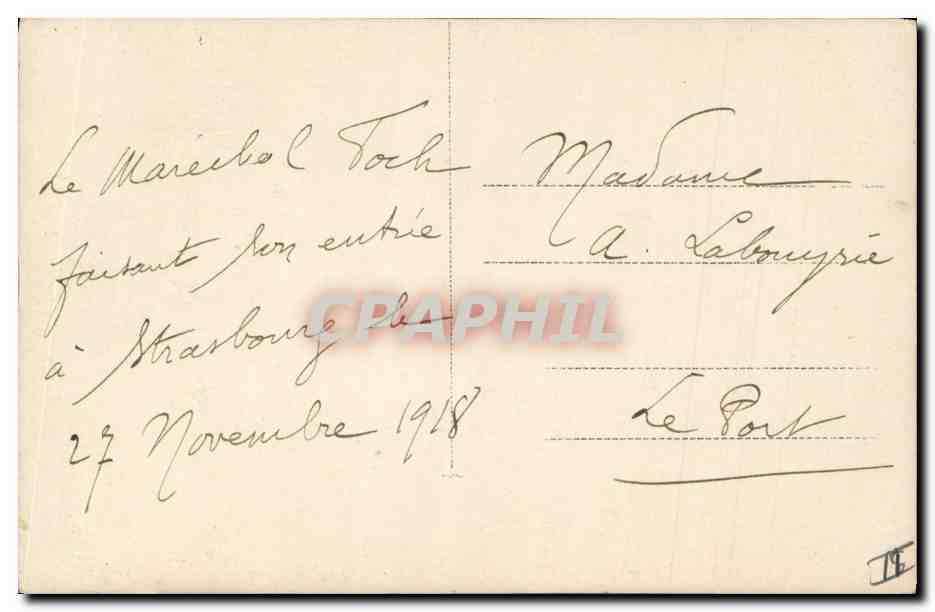 Le Maréchal Foch
faisant son entrée
à Strasbourg le
27 Novembre 1918
Madame
A. Labouyrie
Le Port
CPAPHIL